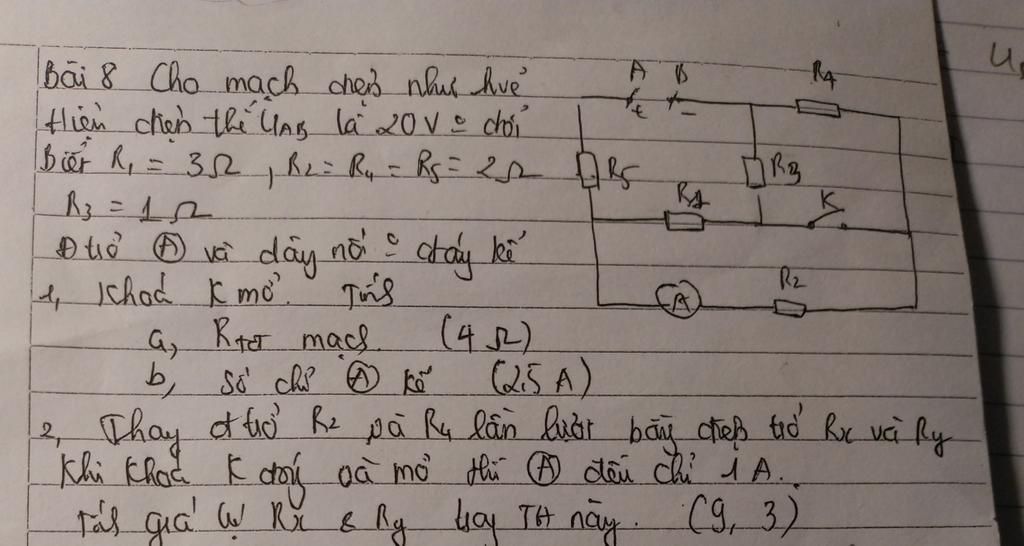 Bài 8 Cho mạch điện như hvẽ
Hiện điện thế UAB là 20V = đổi
Biết R1 = 3Ω, R2 = R4 = R5 = 2Ω
R3 = 1Ω
Đ trở Ⓐ và dây nối = đáng kể
1, Khoá K mở. Tính
a, Rtđ mạch. (4Ω)
b, Số chỉ Ⓐ kế (2,5A)
2, Thay đ trở R2 và R4 lần lượt bằng điện trở Rx và Ry
Khi khoá K đóng và mở thì Ⓐ đều chỉ 1A.
Tính giá trị Rx & Ry trog TH này. (9, 3)
A B R4
+ -
R5 R3
R1 K
R2
A
U